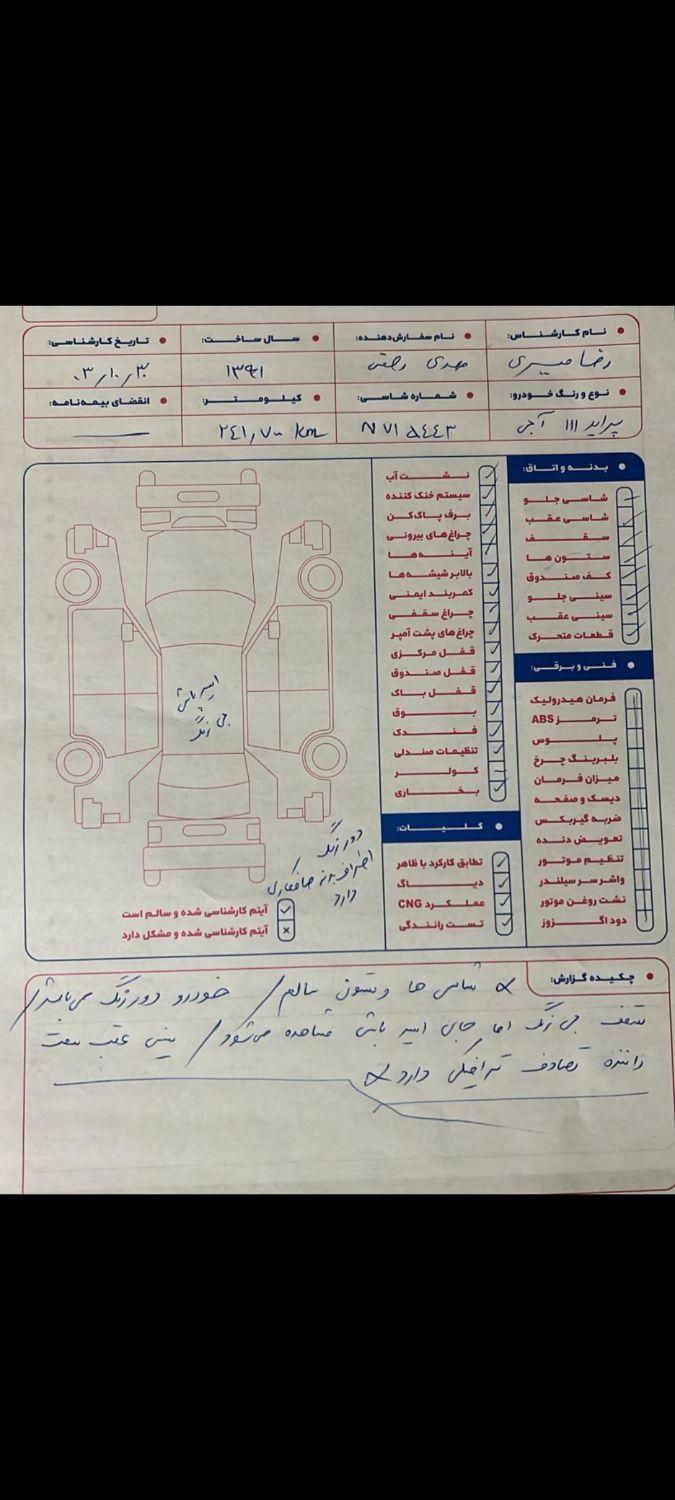 نام کارشناس: نام سفارش‌دهنده: سال ساخت: تاریخ کارشناسی:
رضا میری مهدی ۱۳۹۱ ۰۳/۱۰/۳۰
نوع و رنگ خودرو: شماره شاسی: کیلومتر: انقضای بیمه‌نامه:
پراید ۱۱۱ آبی N ۷۱ ۵۴۴۳ ۲۴۱,۷۰۰ km
بدنه و اتاق:
شاسی جلو
شاسی عقب
سقف
ستون ها
کف صندوق
سینی جلو
سینی عقب
قطعات متحرک
فنی و برقی:
فرمان هیدرولیک
ترمز ABS
پلوس
بلبرینگ چرخ
میزان فرمان
دیسک و صفحه
ضربه گیربکس
تعویض دنده
تنظیم موتور
واشر سر سیلندر
نشت روغن موتور
دود اگزوز
نشت آب
سیستم خنک کننده
برف پاک‌کن
چراغ‌های بیرونی
آینه ها
بالابر شیشه‌ها
کمربند ایمنی
چراغ سقفی
چراغ‌های پشت آمپر
قفل مرکزی
قفل صندوق
قفل باک
بوق
فندک
تنظیمات صندلی
کولر
بخاری
کلیات:
تطابق کارکرد با ظاهر
دیاگ
عملکرد CNG
تست رانندگی
اسید پاشی
بی رنگ
دور رنگ
اطراف بدنه صافکاری
دارد
آیتم کارشناسی شده و سالم است
آیتم کارشناسی شده و مشکل دارد
چکیده گزارش:
شاسی ها و ستون سالم / خودرو دور رنگ می باشد /
سقف بی رنگ اما جای اسید پاشی مشاهده می‌شود / سینی عقب سمت
راننده تصادف ترافیکی دارد